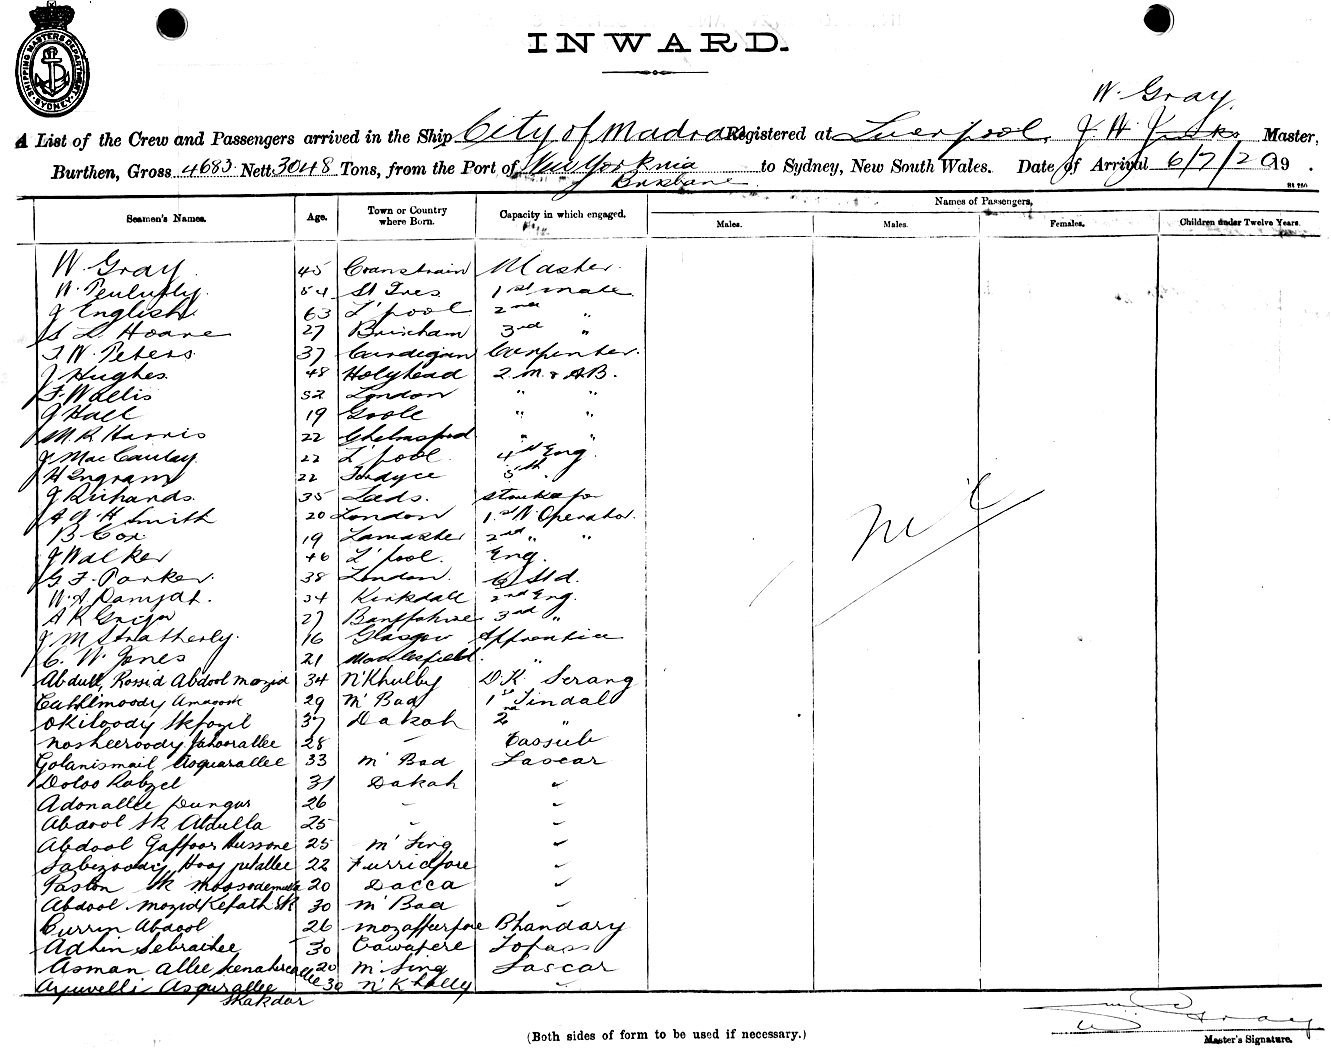 SHIPPING MASTERS DEPARTMENT
SYDNEY
INWARD.
W. Gray
A List of the Crew and Passengers arrived in the Ship City of Madras Registered at Liverpool, J. H. Master,
Burthen, Gross 4683 Nett 3048 Tons, from the Port of New York to Sydney, New South Wales. Date of Arrival 6/7/20 19 .
Brisbane
Seamen's Names. Age. Town or Country where Born. Capacity in which engaged. Names of Passengers,
Males. Males. Females. Children under Twelve Years.
W. Gray 45 Master.
W. 54 St Ives 1st mate
J English 63 L'pool 2nd "
S L Hoare 27 Brixham 3rd "
T. W. Peters 37 Cardigan Carpenter.
J Hughes. 48 Holyhead 2 M. & AB.
F. Wallis 52 London " "
J Hall 19 Goole " "
M R Harris 22 Chelmsford " "
J MacCaulay 22 L'pool. 4th Eng.
H Ingram 22 Fordyce 5th "
J Richards. 35 Leeds. Storekeeper
A H Smith 20 London 1st W Operator.
B Cox 19 Lancaster 2nd " "
J Walker 46 L'pool. Eng.
G. F. Parker. 38 London. Std.
W. A. 34 Kirkdale 2nd Eng.
A R 27 Banffshire 3rd "
J M Stratherly. 16 Glasgow Apprentice
C. W. Jones 21 Macclesfield. "
Abdul Rossid Abdool Mozid 34 N'Khully D.K. Serang
29 M' Bad 1st Tindal
Okiloody Sk Fozil 37 Dakah 2nd "
Nosheeroody Jahoorallee 28 " Cassub
Golanismail Asquarallee 33 M' Bad Lascar
Doloo 31 Dakah "
Adonallee Pungur 26 " "
Abdool Sk Abdulla 25 " "
Abdool Gaffoor Hussone 25 M' Sing "
Sabezoody 22 Furridpore "
Sk 20 Dacca "
Abdool Mozid Kefath Sk 30 M' Bad "
Currin Abdool 26 Mozaffurpore Bhandary
Adhin Sebrathee 30 Cawnpore Topass
Asman Allee 20 M' Sing Lascar
Asqurallee 30 N'Khally "
Shakdar
Nil
W Gray
(Both sides of form to be used if necessary.) Master's Signature.